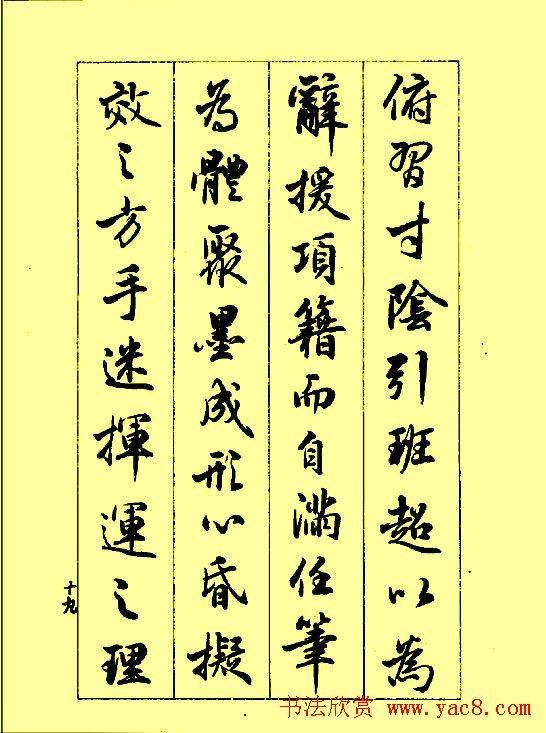 俯習寸陰引班超以為
辭援項籍而自滿任筆
為體聚墨成形心昏擬
效之方手迷揮運之理
十九
书法欣赏 www.yac8.com